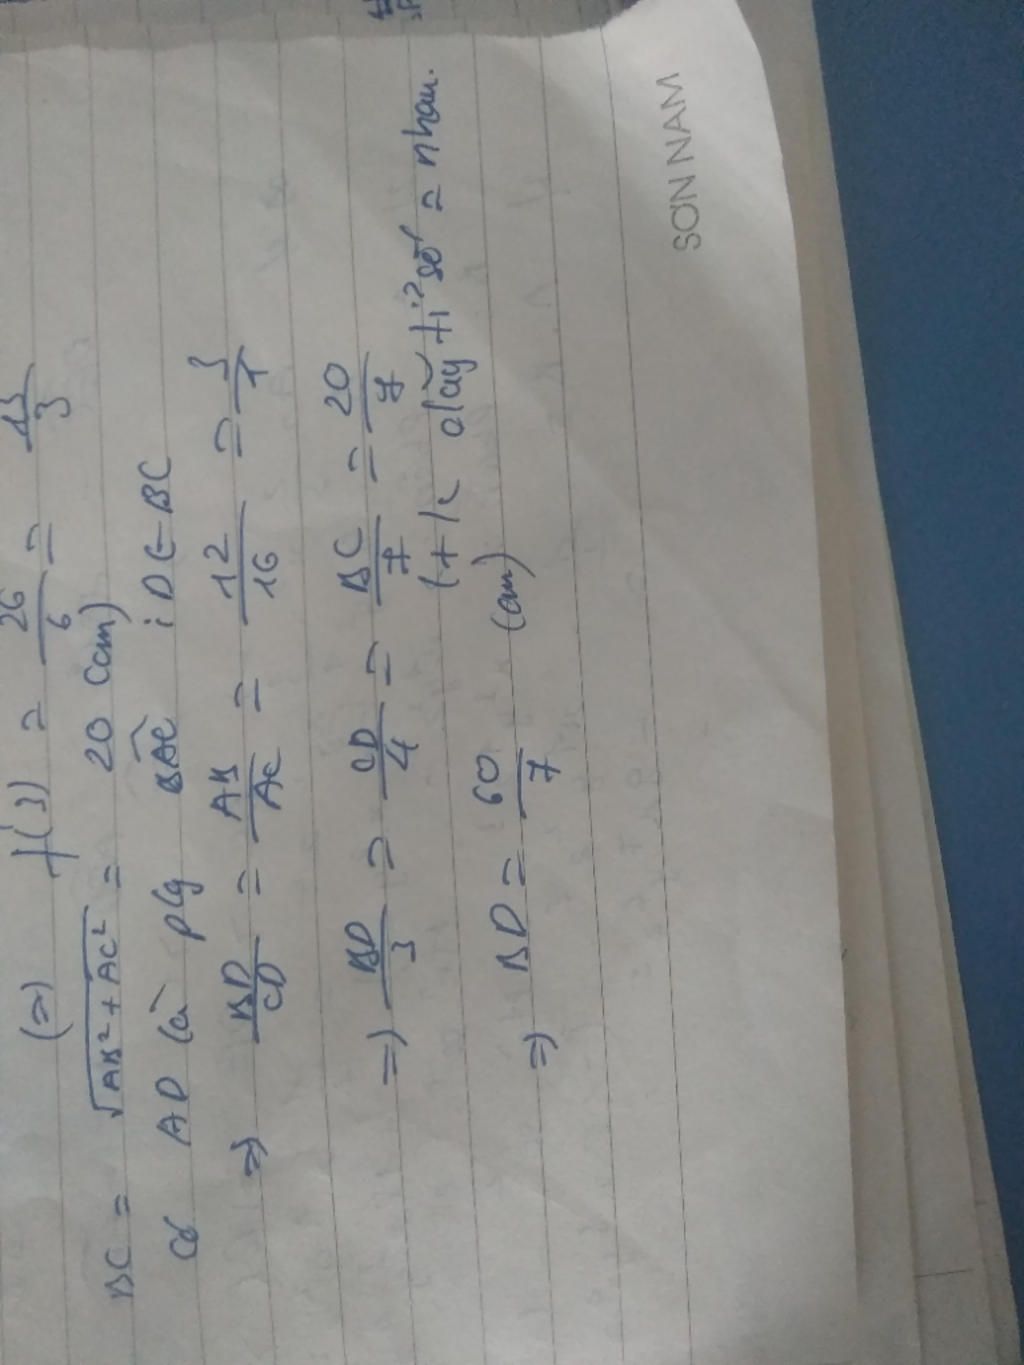 (=) f(3) = 26/6 = 13/3
BC = √AB²+AC² = 20 (cm)
Có AD là plg BAC ; D ∈ BC
=) BD/CD = AB/AC = 12/16 = 3/4
=) BD/3 = CD/4 = BC/7 = 20/7
(t/c dãy tỉ số = nhau.
=) BD = 60/7 (cm)
SƠN NAM